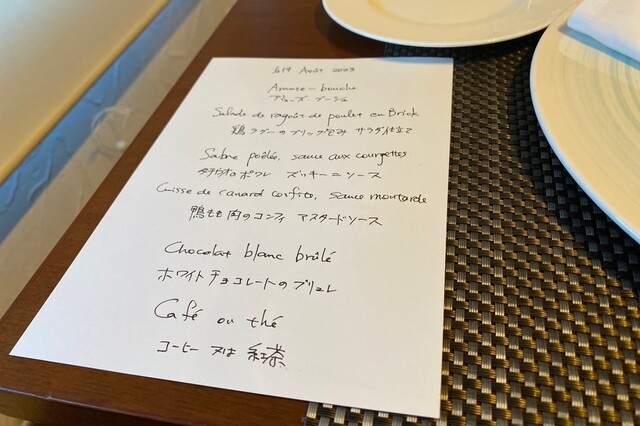 Août 2023
Amuse-bouche
アミューズ・ブーシュ
Salade de ragoût de poulet en Brick
鶏ラグーのブリック包み サラダ仕立て
Sabre poêlé, sauce aux courgettes
太刀魚のポワレ ズッキーニソース
Cuisse de canard confite, sauce moutarde
鴨もも肉のコンフィ マスタードソース
Chocolat blanc brûlé
ホワイトチョコレートのブリュレ
Café ou thé
コーヒー 又は 紅茶